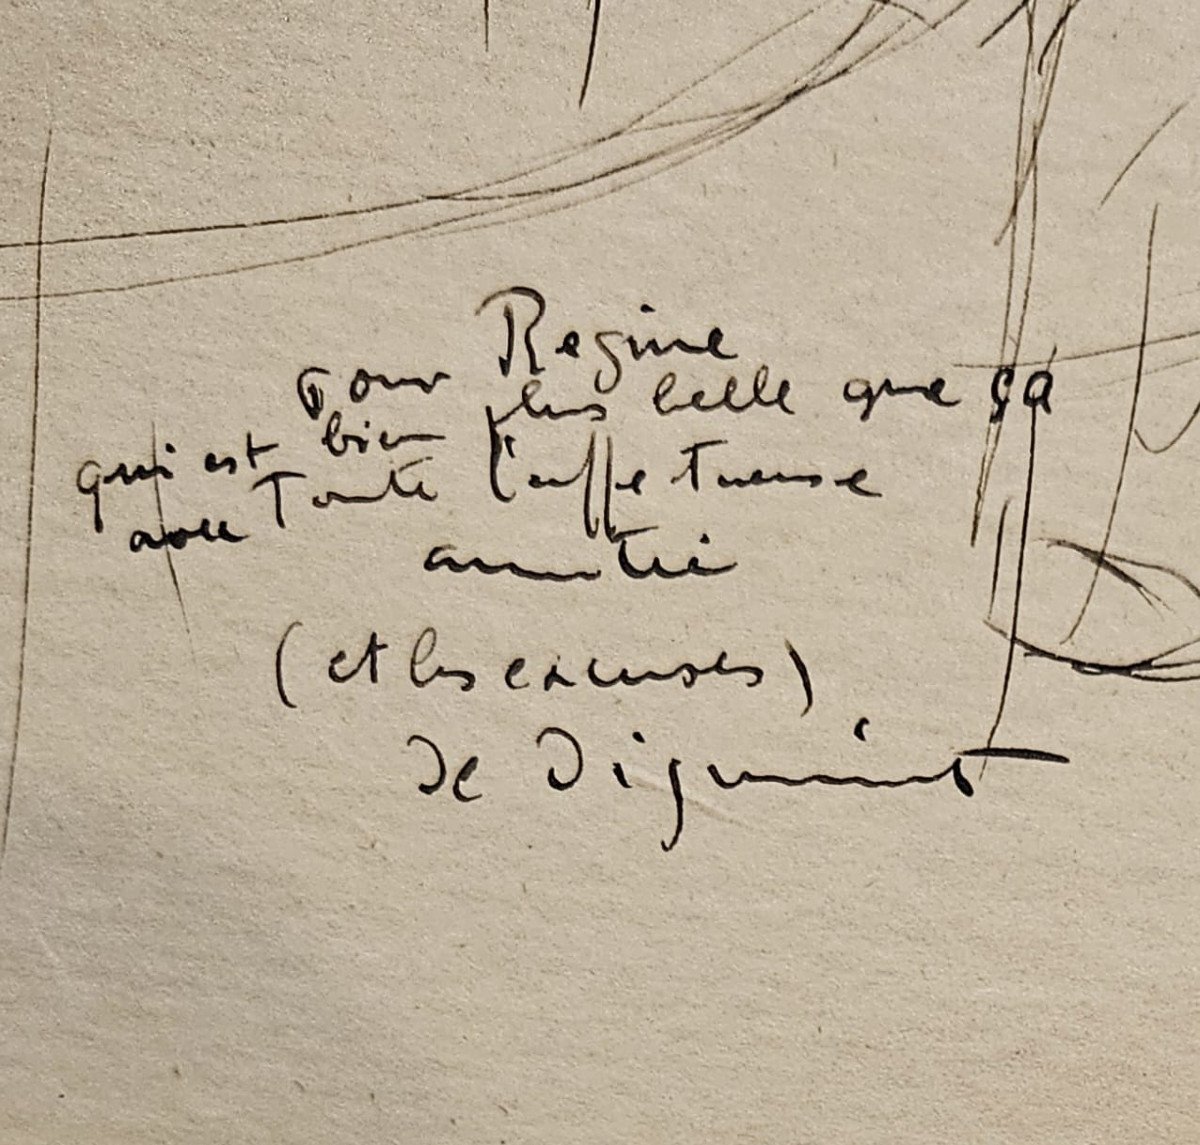 Pour Regine
qui est bien plus belle que ça
avec Toute l'affectueuse
amitié
(et les excuses)
de Dignimont